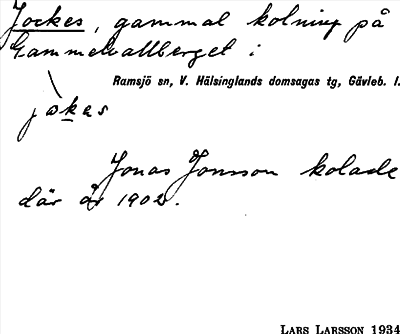 Jockes, gammal kolning på
Gammelvallberget i
Ramsjö sn, V. Hälsinglands domsagas tg, Gävleb. l.
jokes
Jonas Jonsson kolade
där år 1902.
LARS LARSSON 1934